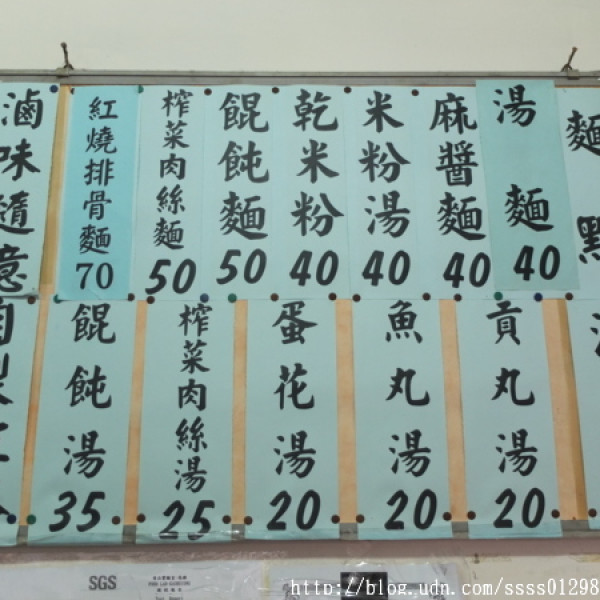 麵點
湯麵 40
麻醬麵 40
米粉湯 40
乾米粉 40
餛飩麵 50
榨菜肉絲麵 50
紅燒排骨麵 70
滷味隨意
貢丸湯 20
魚丸湯 20
蛋花湯 20
榨菜肉絲湯 25
餛飩湯 35
SGS
http://blog.udn.com/ssss01298